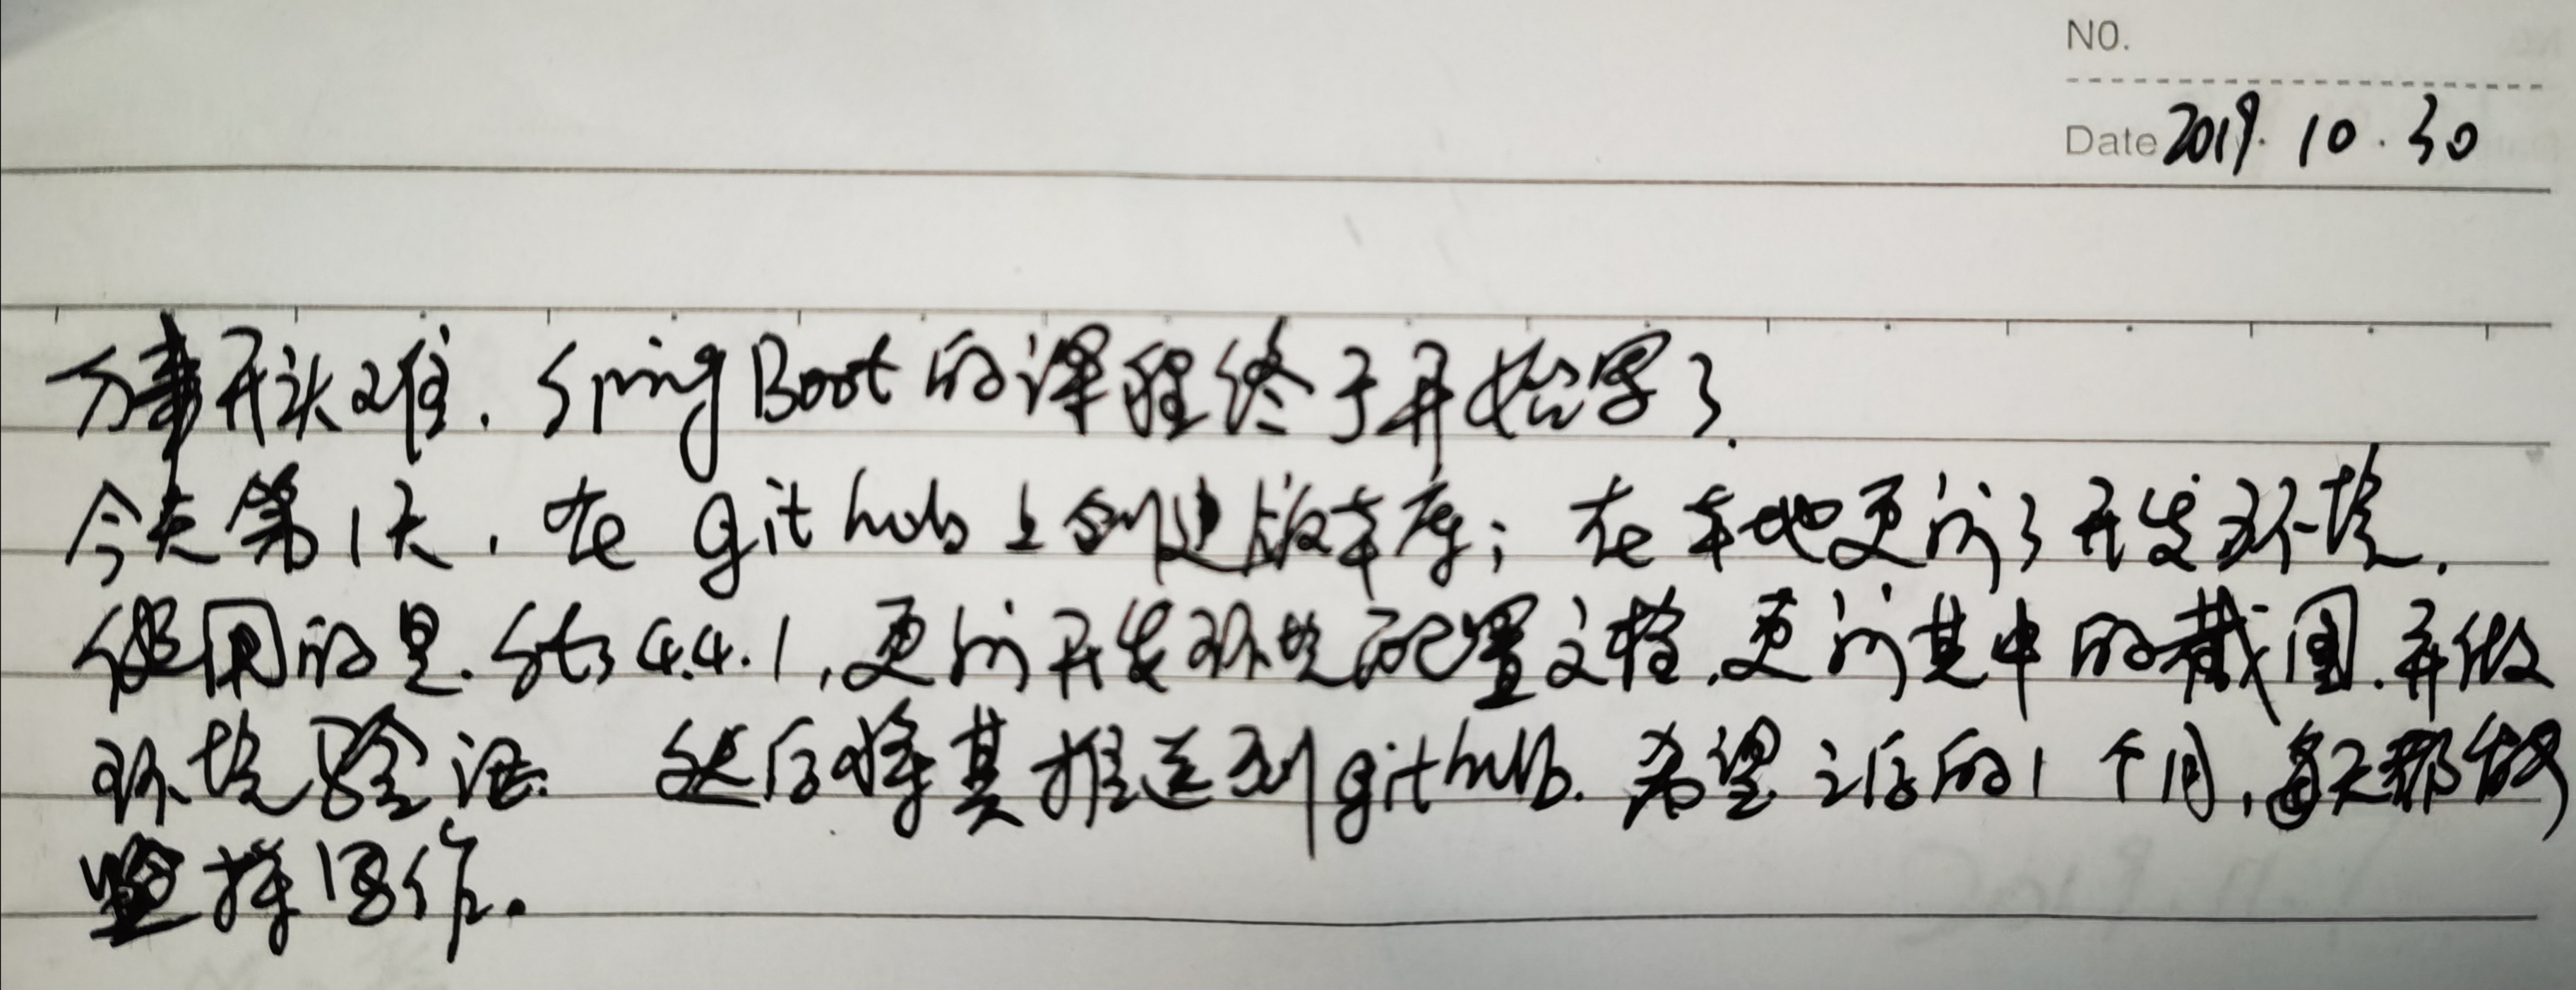 NO.
Date 2019. 10. 30
万事开头难. Spring Boot的课程终于开始写了.
今天第1天, 在github上创建版本库; 在本地更新了开发环境.
使用的是. sts 4.4.1, 更新开发环境配置文档, 更新其中的截图. 并做
环境验证. 然后将其推送到github. 希望之后的1个月, 每天都能
坚持写作.